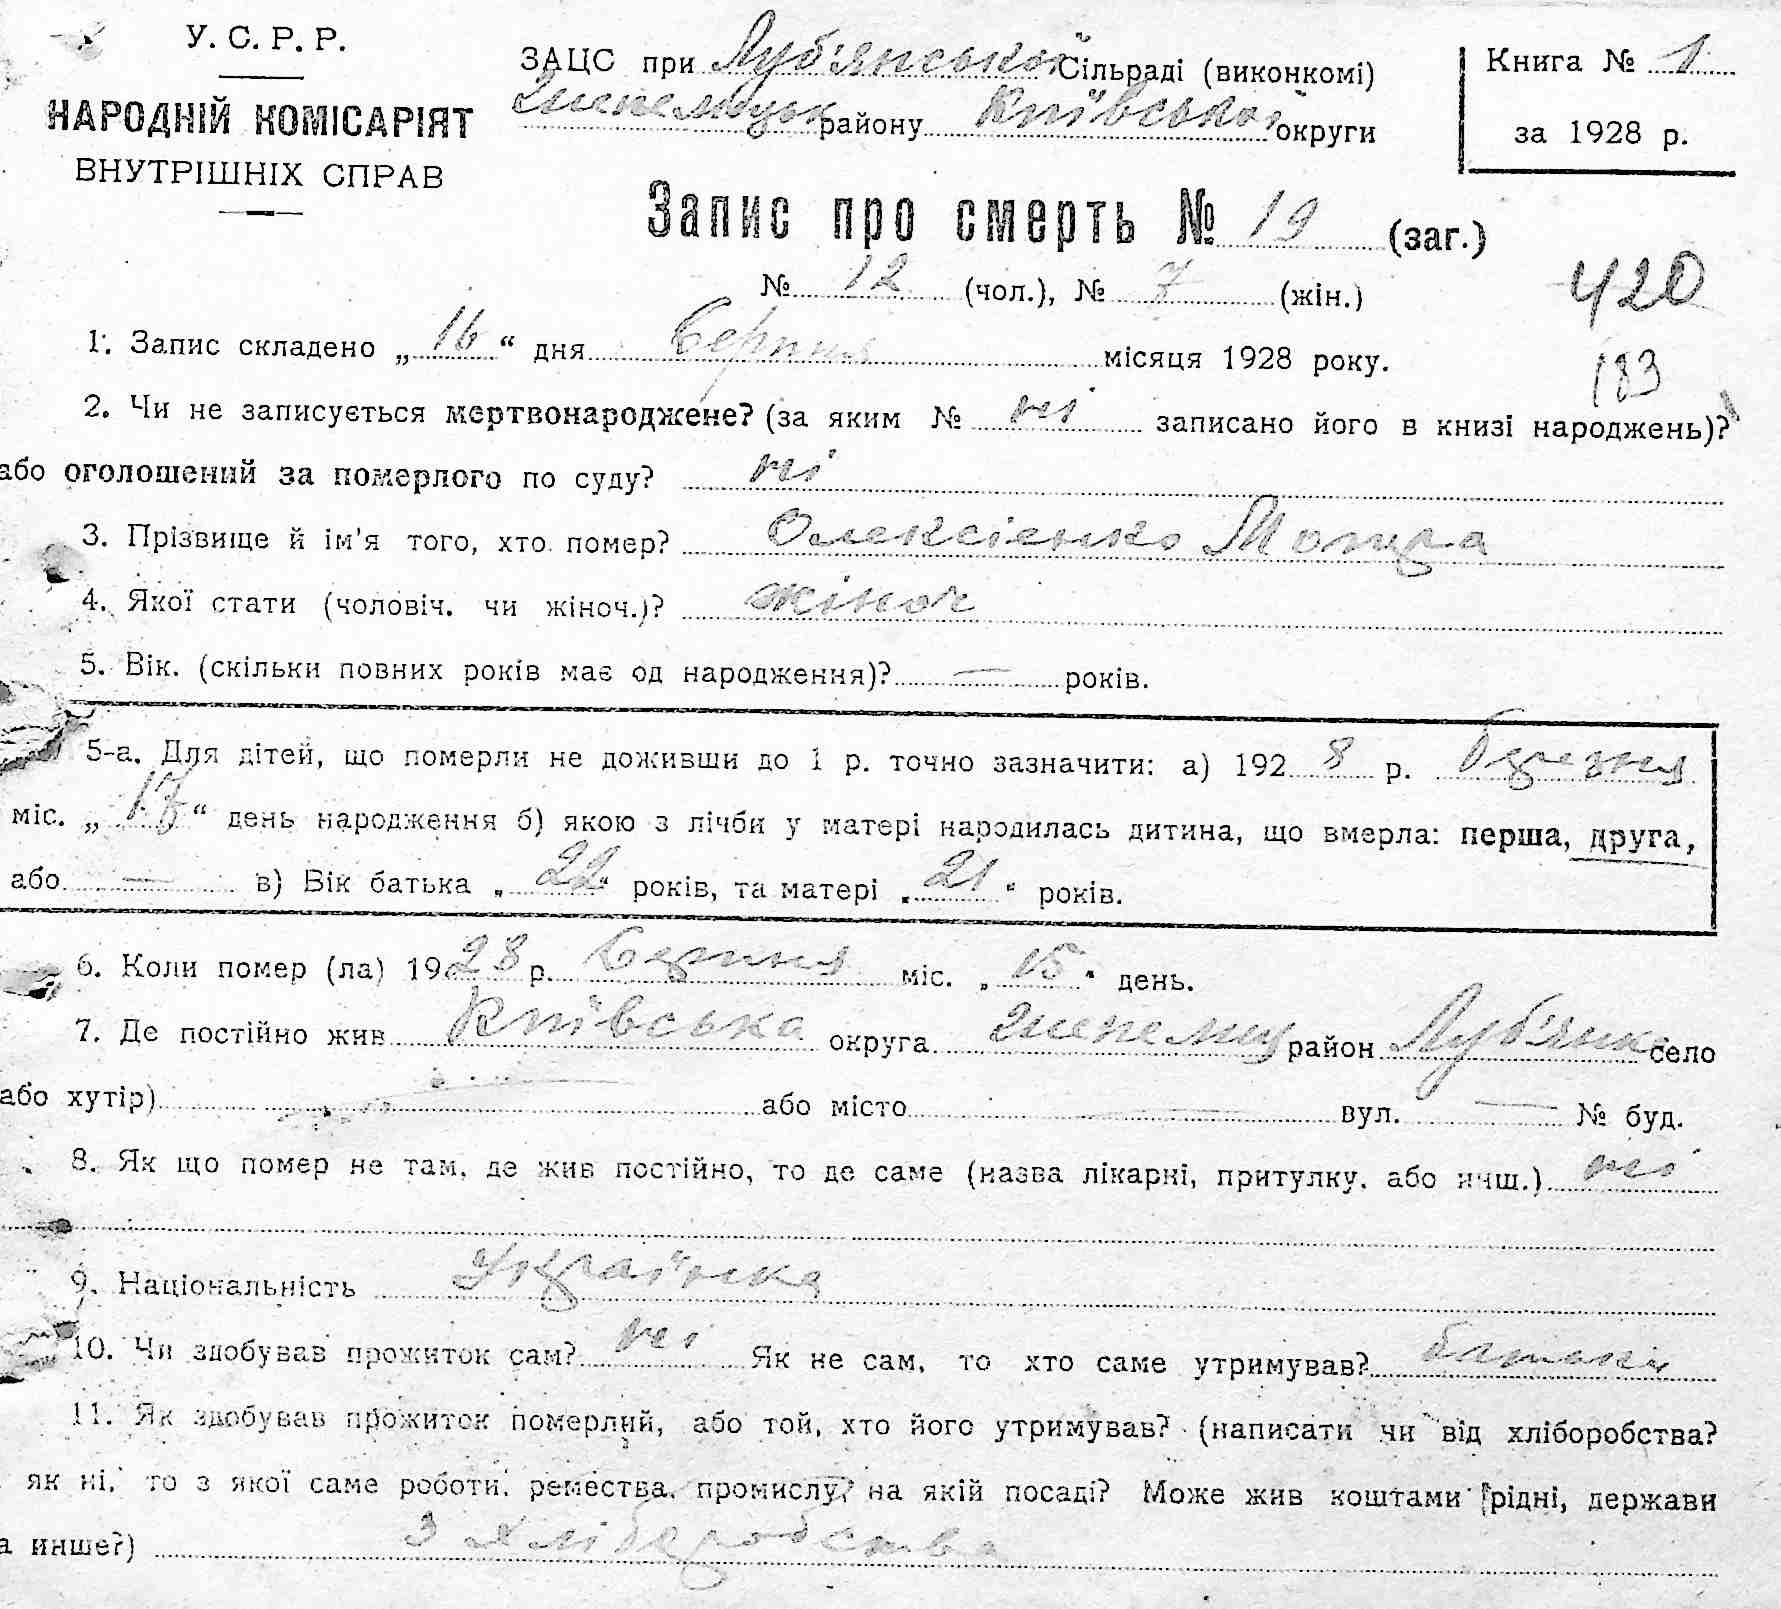 У. С. Р. Р.
НАРОДНІЙ КОМІСАРІЯТ
ВНУТРІШНІХ СПРАВ
ЗАЦС при Луб'янській Сільраді (виконкомі)
району Київської округи
Книга № 1
за 1928 р.
Запис про смерть № 19 (заг.)
№ 12 (чол.), № 7 (жін.)
420
183
1. Запис складено „16“ дня Серпня місяця 1928 року.
2. Чи не записується мертвонароджене? (за яким № ні записано його в книзі народжень)?
або оголошений за померлого по суду? ні
3. Прізвище й ім'я того, хто помер? Олексієнко Мотра
4. Якої стати (чоловіч. чи жіноч.)? жіноч
5. Вік. (скільки повних років має од народження)? — років.
5-а. Для дітей, що померли не доживши до 1 р. точно зазначити: а) 1928 р. березня
міс. „ “ день народження б) якою з лічби у матері народилась дитина, що вмерла: перша, друга,
або — в) Вік батька „22“ років, та матері „21“ років.
6. Коли помер (ла) 1928 р. Серпня міс. „15“ день.
7. Де постійно жив Київська округа район Луб'янка село
або хутір) — або місто — вул. — № буд.
8. Як що помер не там, де жив постійно, то де саме (назва лікарні, притулку, або инш.) ні
9. Національність Українка
10. Чи здобував прожиток сам? ні Як не сам, то хто саме утримував? батьки
11. Як здобував прожиток померлий, або той, хто його утримував? (написати чи від хліборобства?
як ні, то з якої саме роботи, ремества, промислу, на якій посаді? Може жив коштами рідні, держави
а инше?) З хліборобства